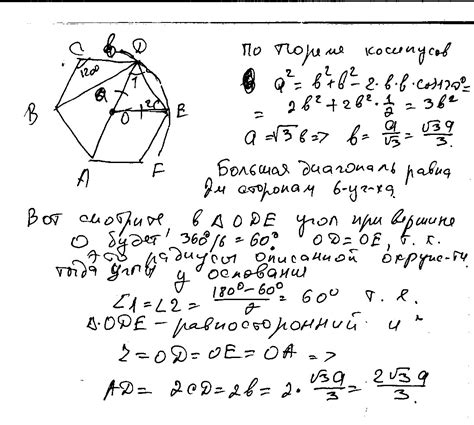 C b D
120° 1
a
B O 2 E
A F
По Теореме косинусов
a² = b² + b² - 2·b·b cos120° =
= 2b² + 2b²·1/2 = 3b²
a = √3b => b = a/√3 = √3a/3.
Большая диагональ равна
2м сторонам 6-уг-ка.
Вот смотрите, в ΔODE угол при вершине
O будет, 360°/6 = 60° OD = OE, т. к.
это радиусы описанной окруж-ти
тогда углы у основания
∠1 = ∠2 = (180° - 60°)/2 = 60° т. е.
ΔODE - равносторонний и
= OD = OE = OA =>
AD = 2CD = 2b = 2·√3a/3 = 2√3a/3